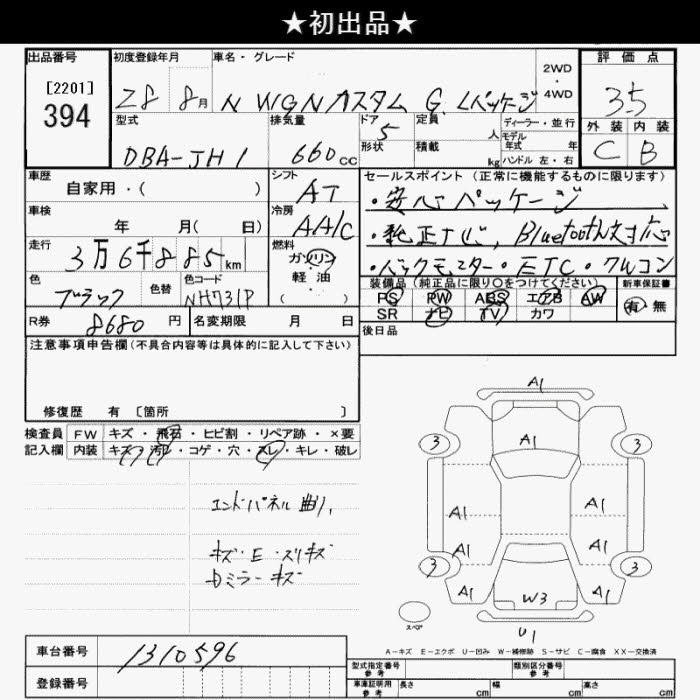 ★初出品★
出品番号
[2201]
394
初度登録年月
28 8月
車名・グレード
N WGNカスタム G Lパッケージ
2WD
・
4WD
評価点
3.5
外装 内装
C B
型式
DBA-JH1
排気量
660cc
ドア
5
形状
定員
人
積載
kg
ディーラー・並行
モデル
年式 年
ハンドル 左・右
車歴
自家用・( )
シフト
AT
車検
年 月( 日)
冷房
AA/C
走行
3万6千885km
燃料
ガソリン
軽油
( )
色
ブラック
色替
色コード
NH731P
R券
8680円
名変期限 月 日
セールスポイント(正常に機能するものに限ります)
・安心パッケージ
・純正ナビ, Bluetooth対応
・バックモニター・ETC・クルコン
装備品(純正品に限り○をつけてください)
PS PW ABS エアB AW
SR ナビ TV カワ
新車保証書
有・無
後日品
注意事項申告欄(不具合内容等は具体的に記入して下さい)
修復歴 有 [箇所 ]
検査員 FW キズ・飛石・ヒビ割・リペア跡・×要
記入欄 内装 キズ・汚レ・コゲ・穴・スレ・キレ・破レ
エンドパネル曲り,
キズ・E・スリキズ
Dミラーキズ
A1
3 A1 3
A1 A1
A1 A1
3 3
A1 W3 A1
スペア
U1
A-キズ E-エクボ U-凹み W-補修跡 S-サビ C-腐食 XX-交換済
車台番号
1310596
登録番号
型式指定番号
参考
類別区分番号
参考
車庫証明用
参考
長さ cm 幅 cm 高さ cm